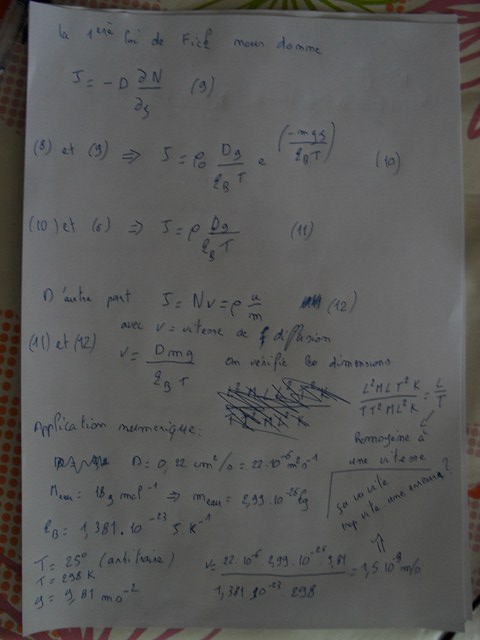 la 1ère loi de Fick nous donne
J = -D ∂N/∂z (9)
(8) et (9) ⇒ J = ρ₀ Dg/(k_B T) e^(-mgz/(k_B T)) (10)
(10) et (6) ⇒ J = ρ Dg/(k_B T) (11)
D'autre part J = Nv = ρ v/m (12)
avec v = vitesse de diffusion
(11) et (12) v = Dmg/(k_B T) on vérifie les dimensions
L²MLT²K/(TT²ML²K) = L/T
homogène à une vitesse
Application numérique:
D = 0,22 cm²/s = 22.10⁻⁶ m² s⁻¹
M_eau = 18g mol⁻¹ ⇒ m_eau = 2,99.10⁻²⁶ kg
k_B = 1,381.10⁻²³ J.K⁻¹
T = 25° (arbitraire)
T = 298 K
g = 9,81 m s⁻²
v = 22.10⁻⁶ 2,99.10⁻²⁶ 9,81/(1,381.10⁻²³ 298) = 1,5 10⁻⁹ m/s
ça va vite
une erreur?